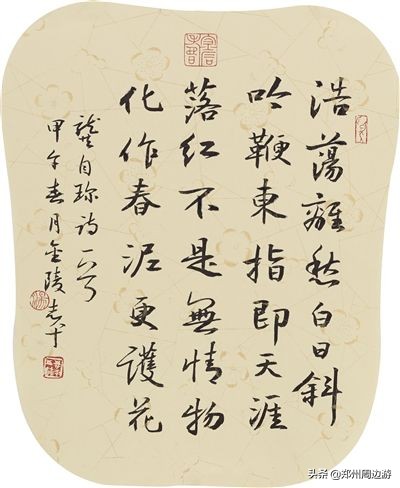 浩蕩離愁白日斜
吟鞭東指即天涯
落紅不是無情物
化作春泥更護花
龔自珍诗一首
甲午春月金陵志平
头条 @郑州周边游